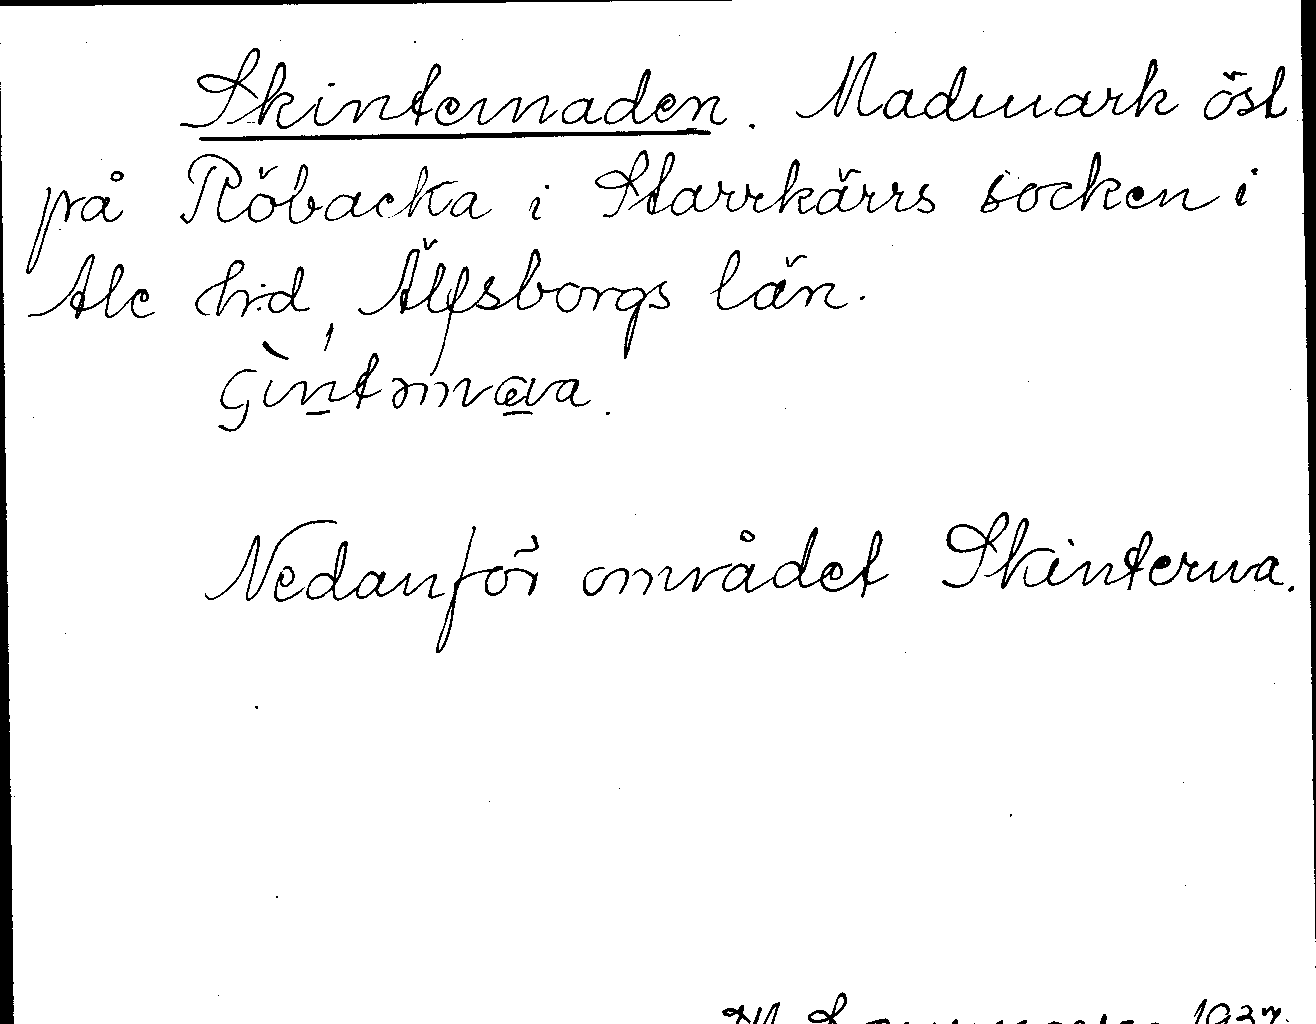 Skintemaden. Madmark öst
på Röbacka i Starrkärrs socken i
Ale hd, Älfsborgs län.
Nedanför området Skinterna.
1937.